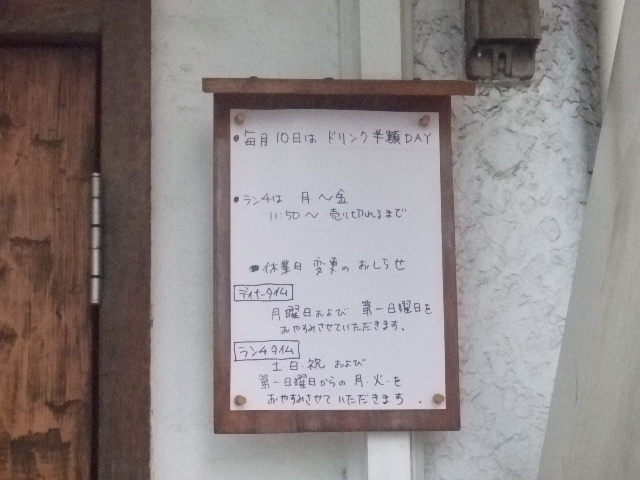 ●毎月10日は ドリンク半額DAY
●ランチは 月〜金
11:50〜 売り切れるまで
●休業日 変更のおしらせ
ディナータイム
月曜日および 第一日曜日を
おやすみさせていただきます.
ランチタイム
土・日・祝 および
第一日曜日からの 月・火・を
おやすみさせて いただきます.